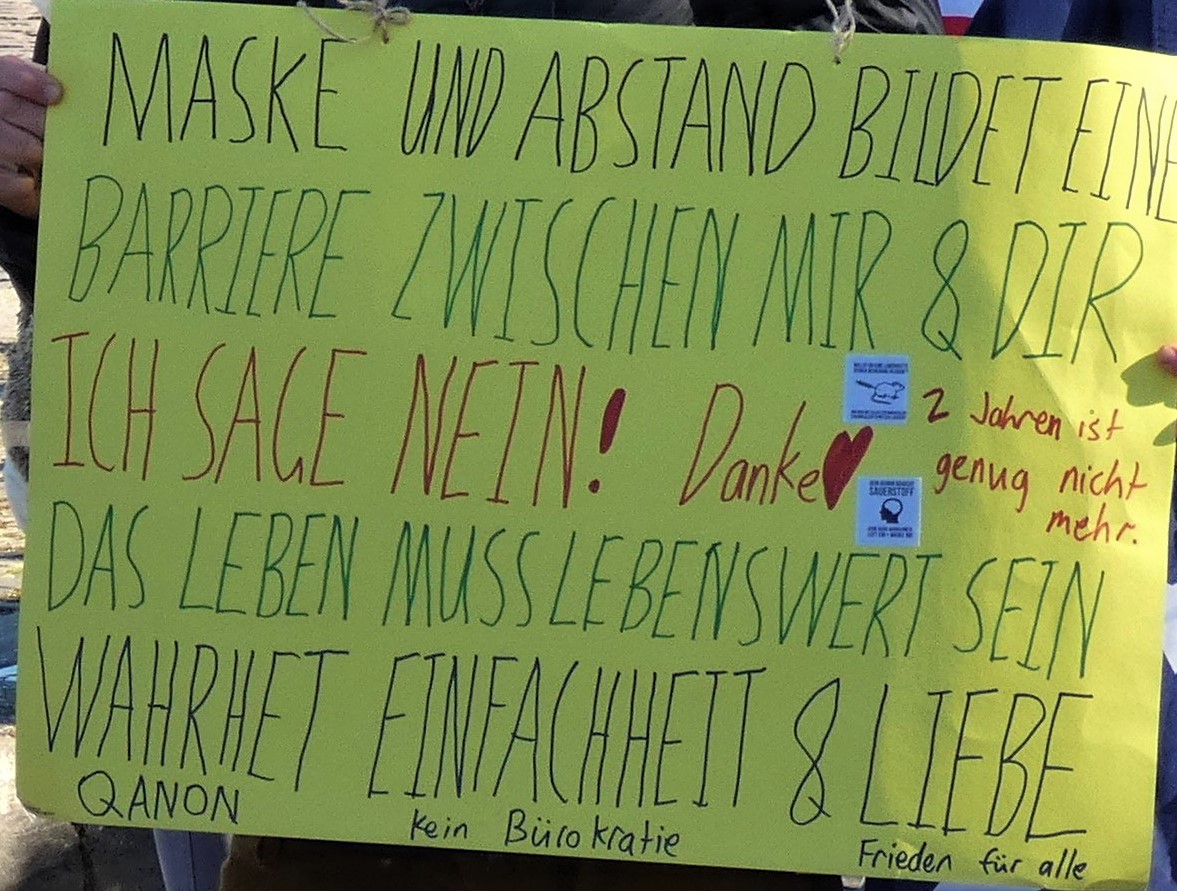 MASKE UND ABSTAND BILDET EINE
BARRIERE ZWISCHEN MIR & DIR
ICH SAGE NEIN! Danke
2 Jahren ist
genug nicht
mehr.
SAUERSTOFF
DAS LEBEN MUSS LEBENSWERT SEIN
WAHRHET EINFACHHEIT & LIEBE
QANON
Kein Bürokratie
Frieden für alle